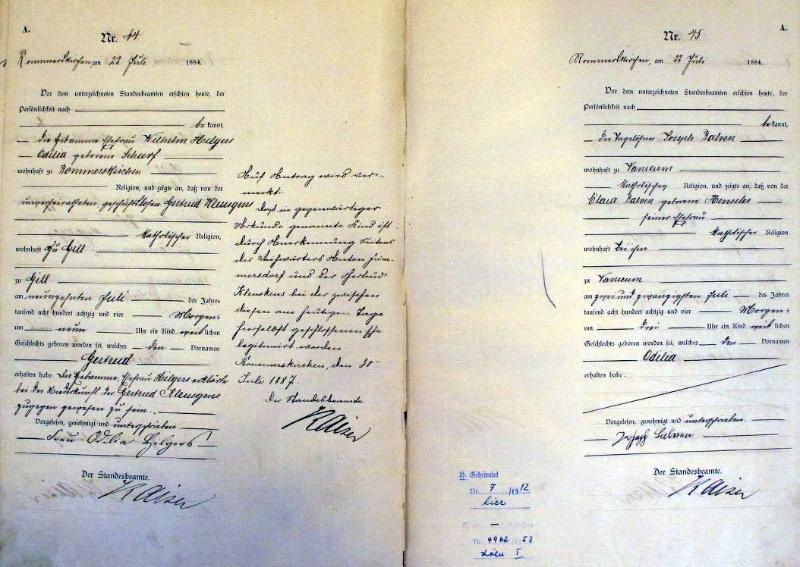 A.
Nr. 44
Rommerskirchen, am 22 Juli 1884.
Vor dem unterzeichneten Standesbeamten erschien heute, der
Persönlichkeit nach
be kannt,
die Hebamme Ehefrau Wilhelm Hilgers
Odilia geborene Schurf
wohnhaft zu Rommerskirchen
Religion, und zeigte an, daß von der
unverheiratheten geschäftslosen Gertrud Klensgens
katholischer Religion,
wohnhaft zu Gill
zu Gill
am neunzehnten Juli des Jahres
tausend acht hundert achtzig und vier Morgens
um neun Uhr ein Kind weiblichen
Geschlechts geboren worden sei, welches den Vornamen
Gertrud
erhalten habe. Die Hebamme Ehefrau Hilgers erklärte
bei der Niederkunft der Gertrud Klensgens
zugegen gewesen zu sein.
Vorgelesen, genehmigt und unterschrieben
Frau Odilia Hilgers
Der Standesbeamte.
Kaiser
Auf Antrag wird ver-
merkt:
Das in gegenwärtiger
Urkunde genannte Kind ist
durch Anerkennung Seitens
des
und der Gertrud
bei der zwischen
diesen am heutigen Tage
hierselbst geschlossenen Ehe
legitimirt worden
Rommerskirchen, den 30
Juli 1887.
Der Standesbeamte
Kaiser
A.
Nr. 45
Rommerskirchen, am 22 Juli 1884.
Vor dem unterzeichneten Standesbeamten erschien heute, der
Persönlichkeit nach
be kannt,
der Tagelöhner Joseph
wohnhaft zu Vanikum
katholischer Religion, und zeigte an, daß von der
Clara geborene
seiner Ehefrau
katholischer Religion
wohnhaft bei ihm
zu Vanikum
am zwei und zwanzigsten Juli des Jahres
tausend acht hundert achtzig und vier Morgens
um drei Uhr ein Kind weiblichen
Geschlechts geboren worden sei, welches den Vornamen
Odilia
erhalten habe
Vorgelesen, genehmigt und unterschrieben
Joseph
Der Standesbeamte.
Kaiser
H. Geheiratet
Nr. 7 /1912
hier
Nr. 4962 53
Köln I